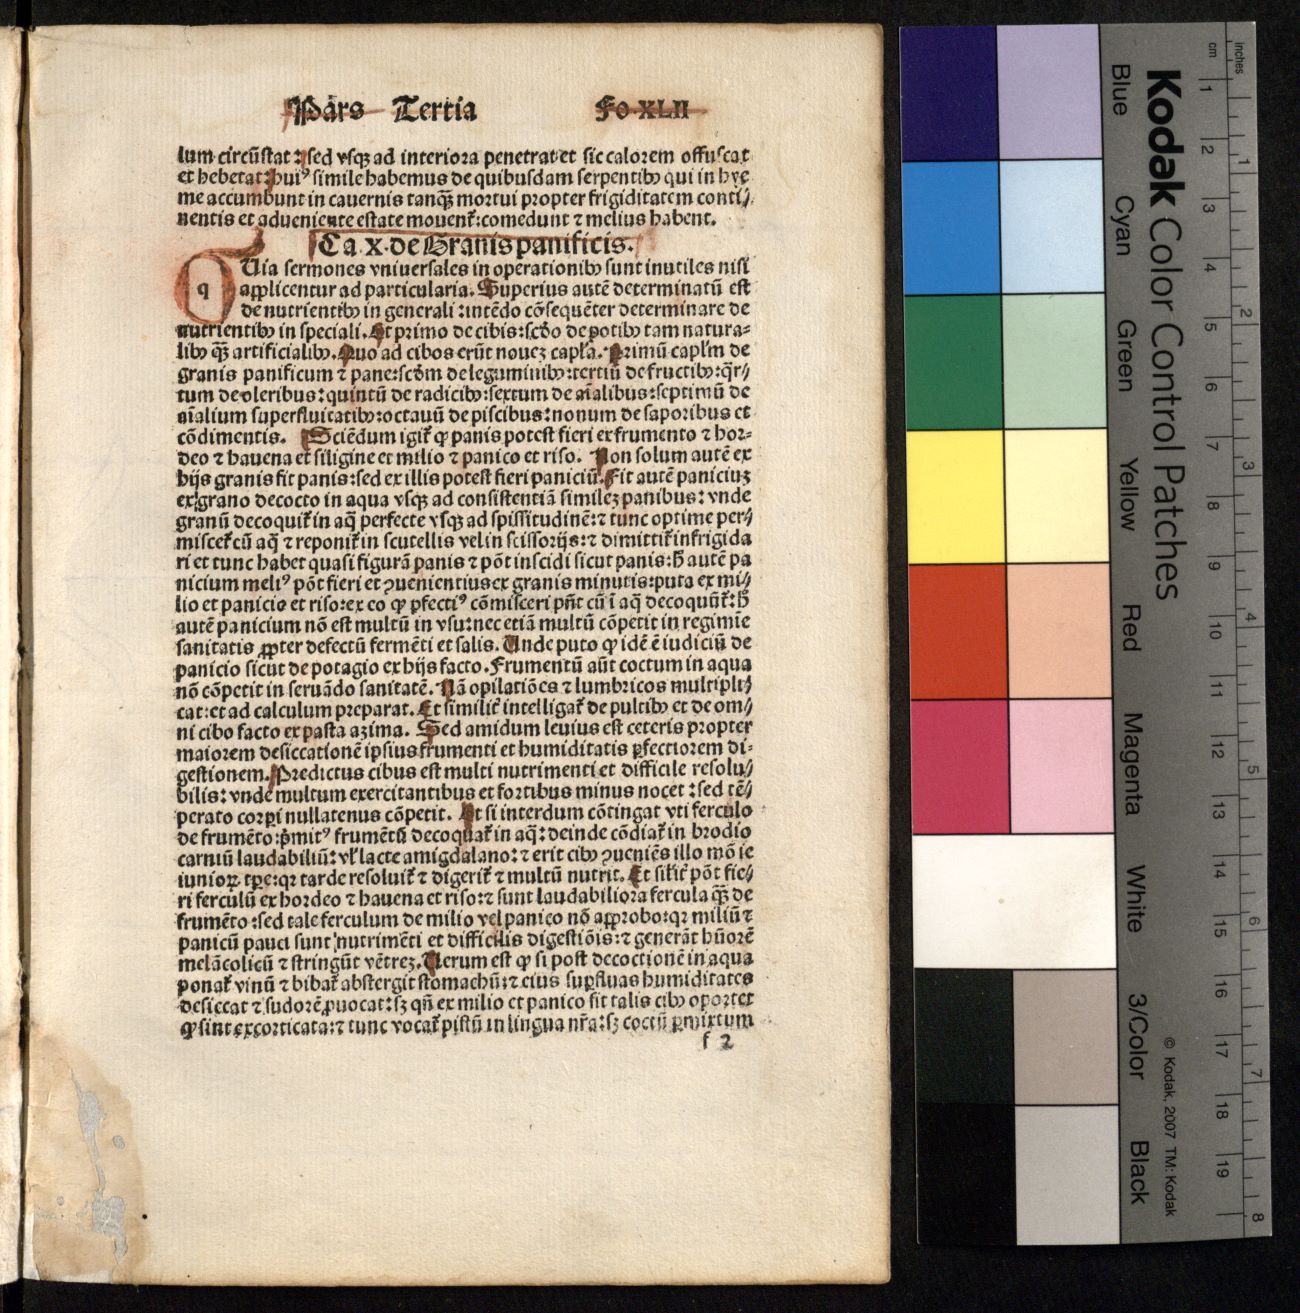 Pars Tertia Fo.XLII
lum circūstat: sed vsqꝫ ad interiora penetrat et sic calorem offuscat
et hebetat: huiꝰ simile habemus de quibusdam serpentibꝫ qui in hye
me accumbunt in cauernis tanqꝫ̄ mortui propter frigiditatem conti⸗
nentis et adueniente estate mouent̄: comedunt ⁊ melius habent.
Ca. X. de Granis panificis.
q QUia sermones vniuersales in operationibꝫ sunt inutiles nisi
applicentur ad particularia. Superius autē determinatū est
de nutrientibꝫ in generali: intēdo cōsequēter determinare de
nutrientibꝫ in speciali. Et primo de cibis: scdo de potibꝫ tam natura⸗
libꝫ qꝫ̄ artificialibꝫ. Quo ad cibos erūt nouez capl'a. Primū capl'm de
granis panificum ⁊ pane: scdm de leguminibꝫ: tertiū de fructibꝫ: q̄r⸗
tum de oleribus: quintū de radicibꝫ: sextum de aīalibus: septimū de
aīalium superfluitatibꝫ: octauū de piscibus: nonum de saporibus et
cōdimentis. Sciēdum igit̄ ꝙ panis potest fieri ex frumento ⁊ hor⸗
deo ⁊ hauena et siligine et milio ⁊ panico et riso. Non solum autē ex
hijs granis fit panis: sed ex illis potest fieri paniciū. Fit autē paniciuz
ex grano decocto in aqua vsqꝫ ad consistentiā similez panibus: vnde
granū decoquit̄ in aq̄ perfecte vsqꝫ ad spissitudinē: ⁊ tunc optime per⸗
miscet̄ cū aq̄ ⁊ reponit̄ in scutellis vel in scissorijs: ⁊ dimittit̄ infrigida
ri et tunc habet quasi figurā panis ⁊ pōt inscidi sicut panis: h̄ autē pa
nicium meliꝰ pōt fieri et ꝯuenientius ex granis minutis: puta ex mi⸗
lio et panicio et riso: ex eo ꝙ ꝑfectiꝰ cōmisceri pn̄t cū ī aq̄ decoquūt̄: h̄
autē panicium nō est multū in vsu: nec etiā multū cōpetit in regimīe
sanitatis ꝓpter defectū fermēti et salis. Unde puto ꝙ idē ē iudiciū de
panicio sicut de potagio ex hijs facto. Frumentū aūt coctum in aqua
nō cōpetit in seruādo sanitatē. Nā opilatiōes ⁊ lumbricos multipli⸗
cat: et ad calculum preparat. Et similit̄ intelligat̄ de pultibꝫ et de om⸗
ni cibo facto ex pasta azima. Sed amidum leuius est ceteris propter
maiorem desiccationē ipsius frumenti et humiditatis ꝑfectiorem di⸗
gestionem. Predictus cibus est multi nutrimenti et difficile resolu⸗
bilis: vnde multum exercitantibus et fortibus minus nocet: sed tē⸗
perato corpi nullatenus cōpetit. Et si interdum cōtingat vti ferculo
de frumēto: p̄mitꝰ frumētū decoquat̄ in aq̄: deinde cōdiat̄ in brodio
carniū laudabiliū: vl' lacte amigdalano: ⁊ erit cibꝫ ꝯueniēs illo mō ie
iunioꝝ tpe: qꝛ tarde resoluit̄ ⁊ digerit̄ ⁊ multū nutrit. Et silit̄ pōt fie⸗
ri ferculū ex hordeo ⁊ hauena et riso: ⁊ sunt laudabiliora fercula qꝫ̄ de
frumēto: sed tale ferculum de milio vel panico nō approbo: qꝛ miliū ⁊
panicū pauci sunt nutrimēti et difficilis digestiōis: ⁊ generāt hūorē
melācolicū ⁊ stringūt vētrez. Uerum est ꝙ si post decoctionē in aqua
ponat̄ vinū ⁊ bibat̄ abstergit stomachū: ⁊ eius suꝑfluas humiditates
desiccat ⁊ sudorē ꝓuocat: sꝫ qn̄ ex milio et panico fit talis cibꝫ oportet
ꝙ sint excorticata: ⁊ tunc vocat̄ pistū in lingua nr̄a: sꝫ coctū ꝑmixtum
f 2
Kodak Color Control Patches
Blue
Cyan
Green
Yellow
Red
Magenta
White
3/Color
Black
© Kodak, 2007 TM: Kodak
cm 1 2 3 4 5 6 7 8 9 10 11 12 13 14 15 16 17 18 19
inches 1 2 3 4 5 6 7 8